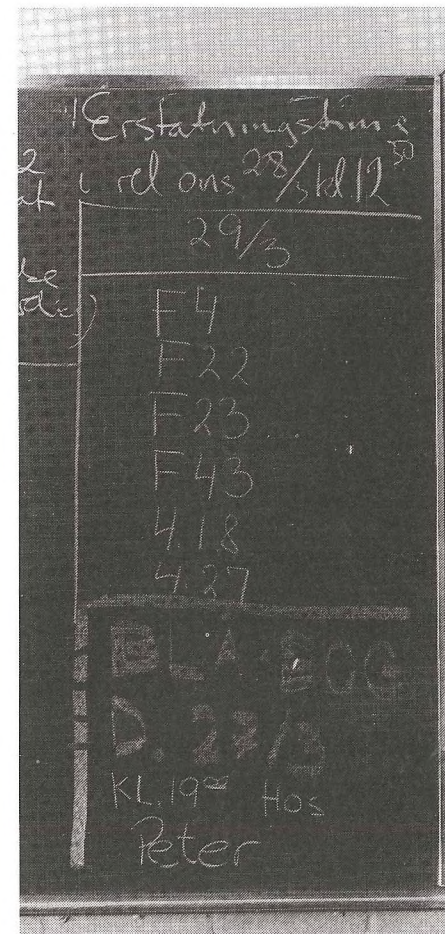 2
at
be
Erstatningstime
i rel ons 28/3 kl.12 30
29/3
F4
F22
F23
F43
4.18
4.27
BLÅ EGG
D. 27/3
KL. 19 00 Hos
Peter